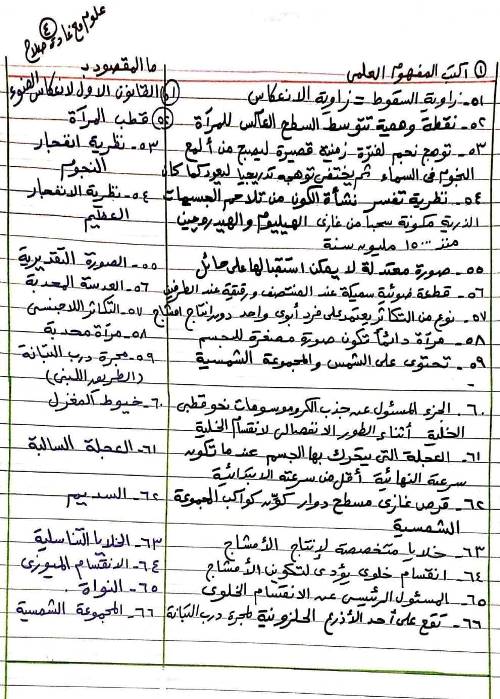 علوم مع غادة صلاح
٤
① اكتب المفهوم العلمى
ما المقصود بـ
٥١- زاوية السقوط = زاوية الانعكاس
٥١ القانون الاول لانعكاس الضوء
٥٢- نقطة وهمية تتوسط السطح العاكس للمرآة
٥٢ قطب المرآة
٥٣- توهج نجم لفترة زمنية قصيرة ليصبح من ألمع
النجوم فى السماء ثم يختفى توهجه تدريجيا ليعود كما كان
٥٣- نظرية انفجار
النجوم
٥٤- نظرية تفسر نشأة الكون من تلاحم الجسيمات
الذرية مكونة سحبا من غازى الهيليوم والهيدروچين
منذ ١٥٠٠٠ مليون سنة
٥٤- نظرية الانفجار
العظيم
٥٥- صورة معتدلة لا يمكن استقبالها على حائل
٥٥- الصورة التقديرية
٥٦- قطعة ضوئية سميكة عند المنتصف ورقيقة عند الطرفين
٥٦- العدسة المحدبة
٥٧- نوع من التكاثر يعتمد على فرد أبوى واحد دون إنتاج أمشاج
٥٧- التكاثر اللاجنسى
٥٨- مرآة دائماً تكون صورة مصغرة للجسم
٥٨- مرآة محدبة
٥٩- تحتوى على الشمس والمجموعة الشمسية
٥٩- مجرة درب التبانة
(الطريق اللبنى)
٦٠- الجزء المسئول عن جذب الكروموسومات نحو قطبى
الخلية أثناء الطور الانفصالى لانقسام الخلية
٦٠- خيوط المغزل
٦١- العجلة التى يتحرك بها الجسم عندما تكون
سرعته النهائية أقل من سرعته الابتدائية
٦١- العجلة السالبة
٦٢- قرص غازى مسطح دوار كوّن كواكب المجموعة
الشمسية
٦٢- السديم
٦٣- خلايا متخصصة لإنتاج الأمشاج
٦٣- الخلايا التناسلية
٦٤- انقسام خلوى يؤدى لتكوين الأمشاج
٦٤- الانقسام الميوزى
٦٥- المسئول الرئيسى عن الانقسام الخلوى
٦٥- النواة
٦٦- تقع على أحد الأذرع الحلزونية لمجرة درب التبانة
٦٦- المجموعة الشمسية